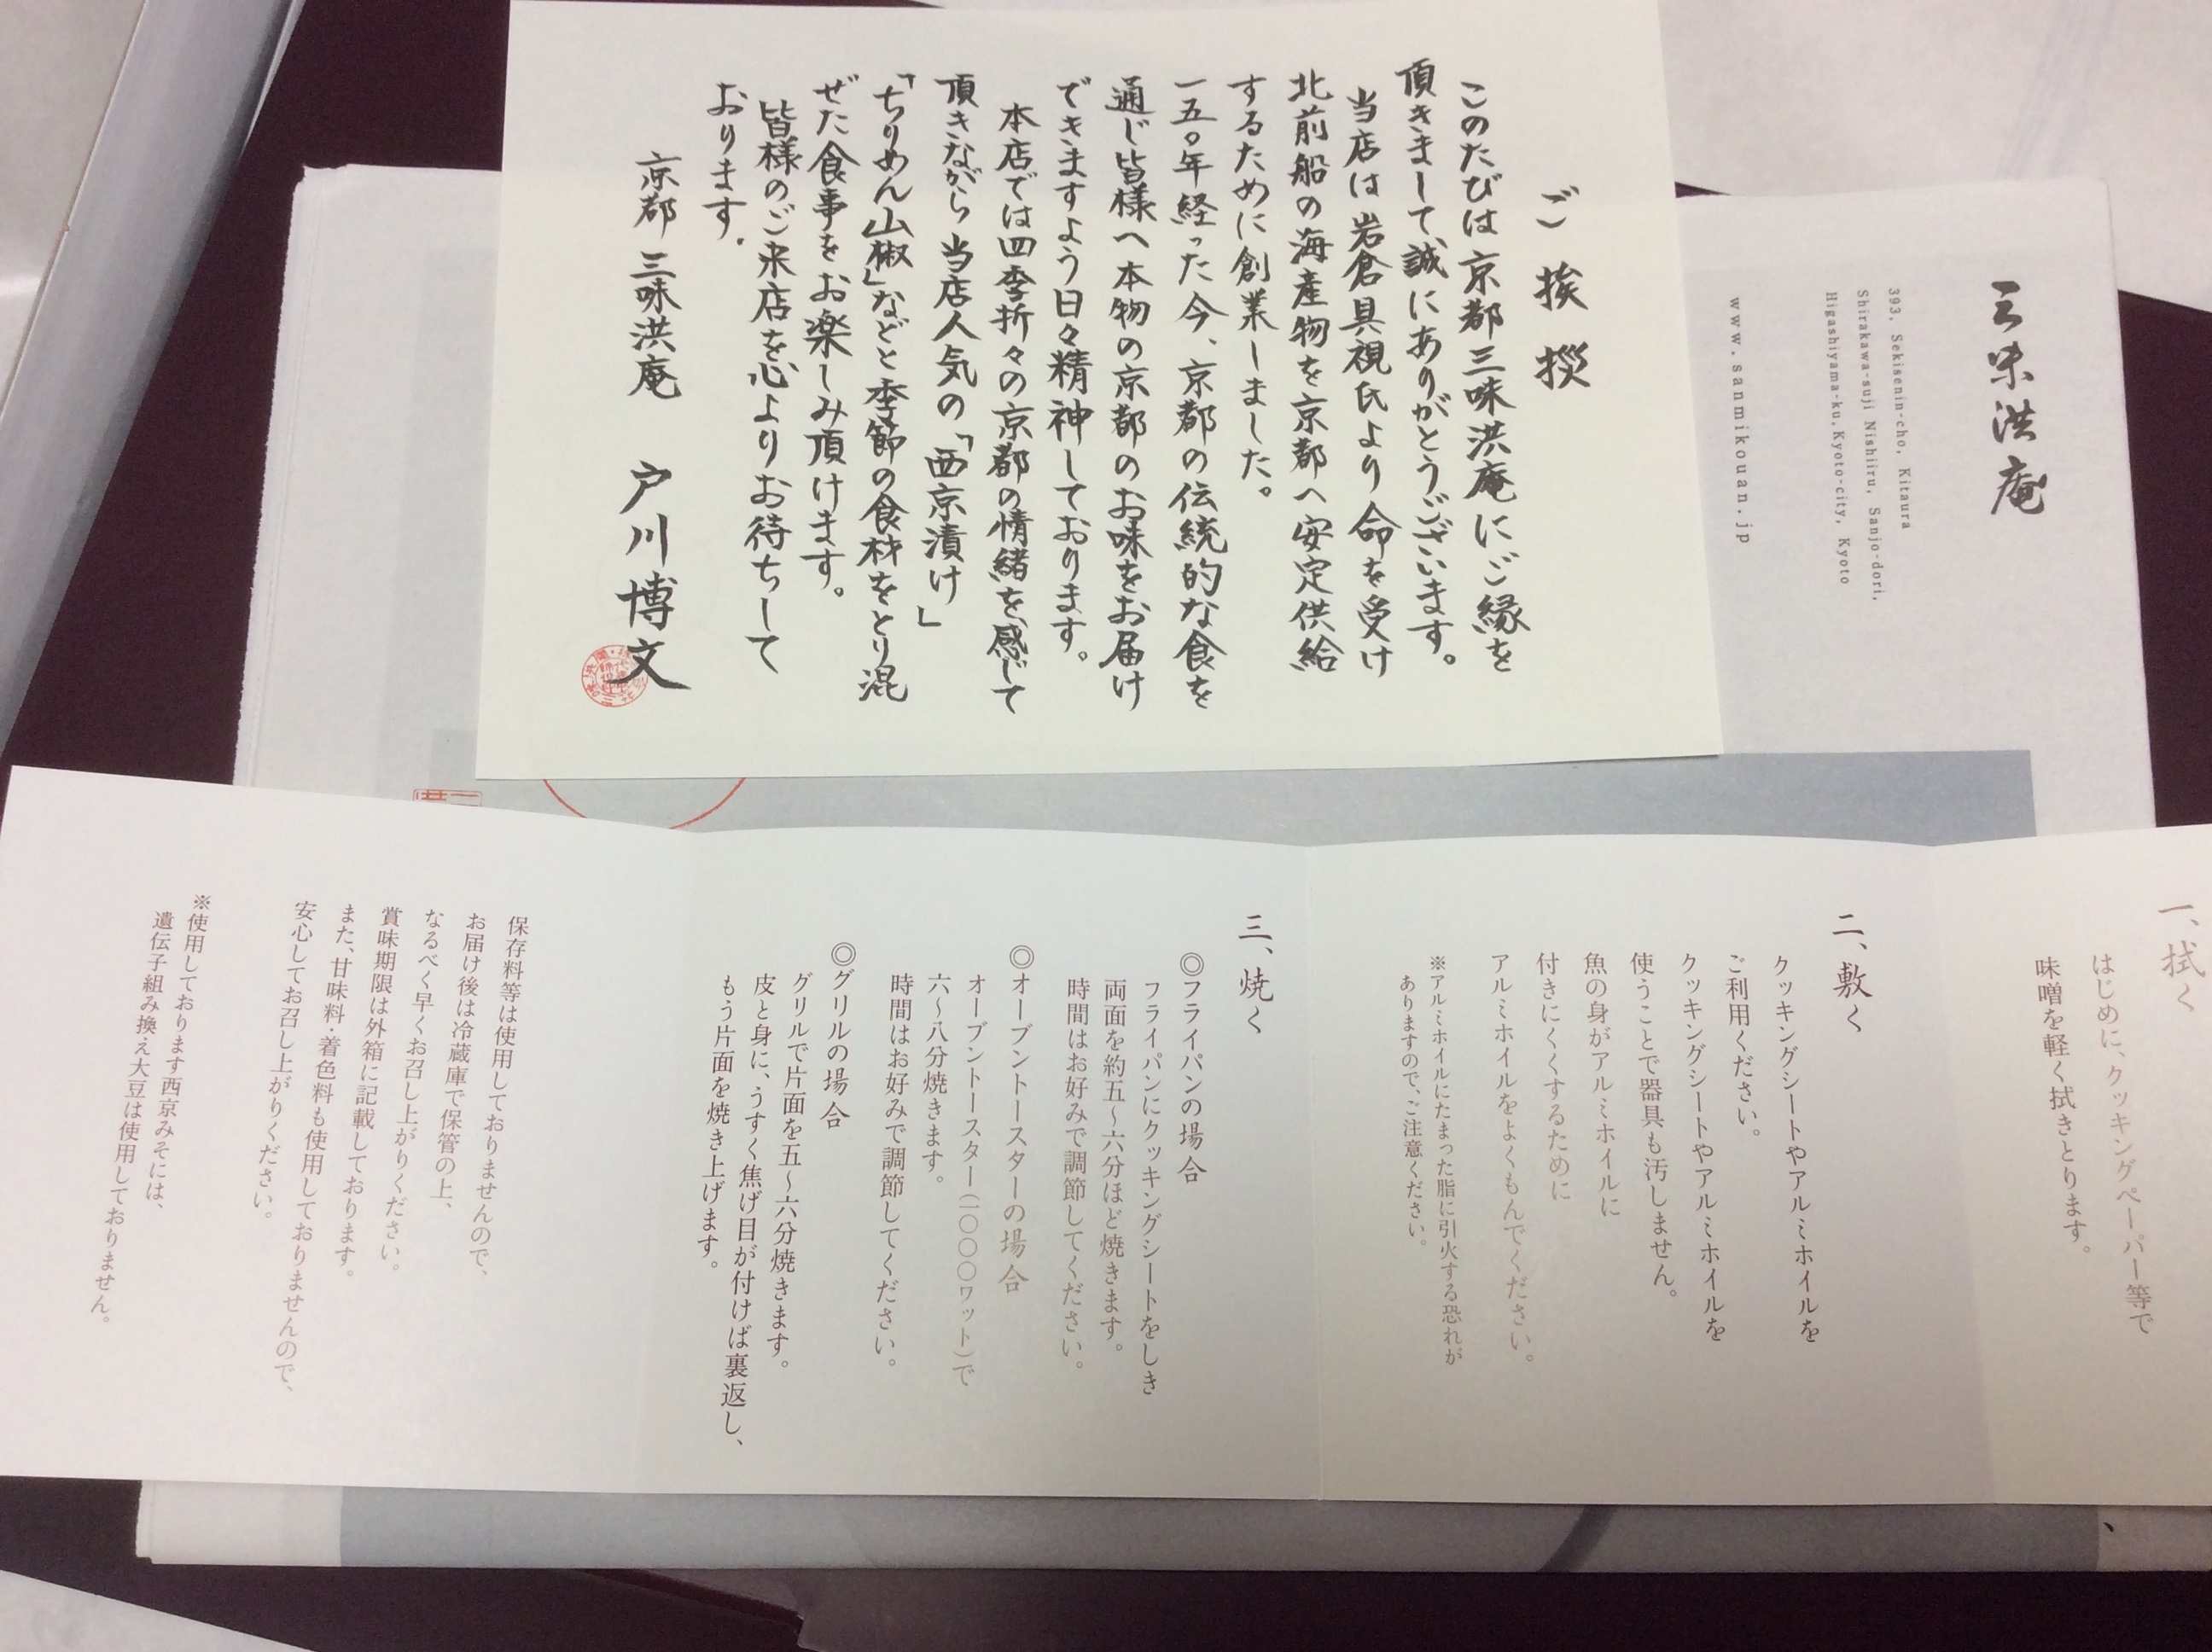 ご挨拶
このたびは京都三味洪庵にご縁を
頂きまして、誠にありがとうございます。
当店は岩倉具視氏より命を受け
北前船の海産物を京都へ安定供給
するために創業しました。
一五〇年経った今、京都の伝統的な食を
通じ皆様へ本物の京都のお味をお届け
できますよう日々精神しております。
本店では四季折々の京都の情緒を感じて
頂きながら当店人気の「西京漬け」
「ちりめん山椒」などと季節の食材をとり混
ぜた食事をお楽しみ頂けます。
皆様のご来店を心よりお待ちして
おります。
京都 三味洪庵 戸川博文
三味洪庵
393, Sekisenin-cho, Kitaura
Shirakawa-suji Nishiiru, Sanjo-dori,
Higashiyama-ku, Kyoto-city, Kyoto
www.sanmikouan.jp
一、拭く
はじめに、クッキングペーパー等で
味噌を軽く拭きとります。
二、敷く
クッキングシートやアルミホイルを
ご利用ください。
クッキングシートやアルミホイルを
使うことで器具も汚しません。
魚の身がアルミホイルに
付きにくくするために
アルミホイルをよくもんでください。
※アルミホイルにたまった脂に引火する恐れが
ありますので、ご注意ください。
三、焼く
◎フライパンの場合
フライパンにクッキングシートをしき
両面を約五〜六分ほど焼きます。
時間はお好みで調節してください。
◎オーブントースターの場合
オーブントースター（一〇〇〇ワット）で
六〜八分焼きます。
時間はお好みで調節してください。
◎グリルの場合
グリルで片面を五〜六分焼きます。
皮と身に、うすく焦げ目が付けば裏返し、
もう片面を焼き上げます。
保存料等は使用しておりませんので、
お届け後は冷蔵庫で保管の上、
なるべく早くお召し上がりください。
賞味期限は外箱に記載しております。
また、甘味料・着色料も使用しておりませんので、
安心してお召し上がりください。
※使用しております西京みそには、
遺伝子組み換え大豆は使用しておりません。